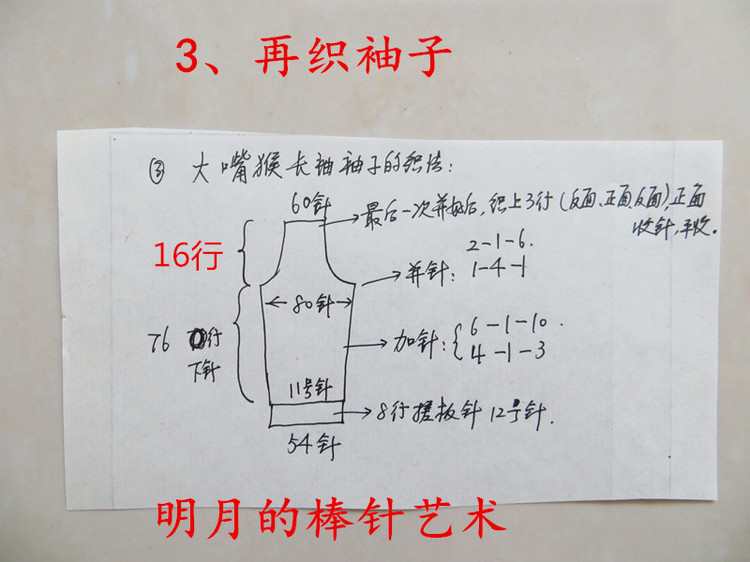 3、再织袖子
③ 大嘴猴长袖袖子的织法：
60针
最后一次并好后，织上3行（反面、正面、反面），正面
收针，平收。
16行
2-1-6.
并针：1-4-1
80针
76 行
下针
加针：{6-1-10.
4-1-3
11号针
8行搓板针 12号针.
54针
明月的棒针艺术